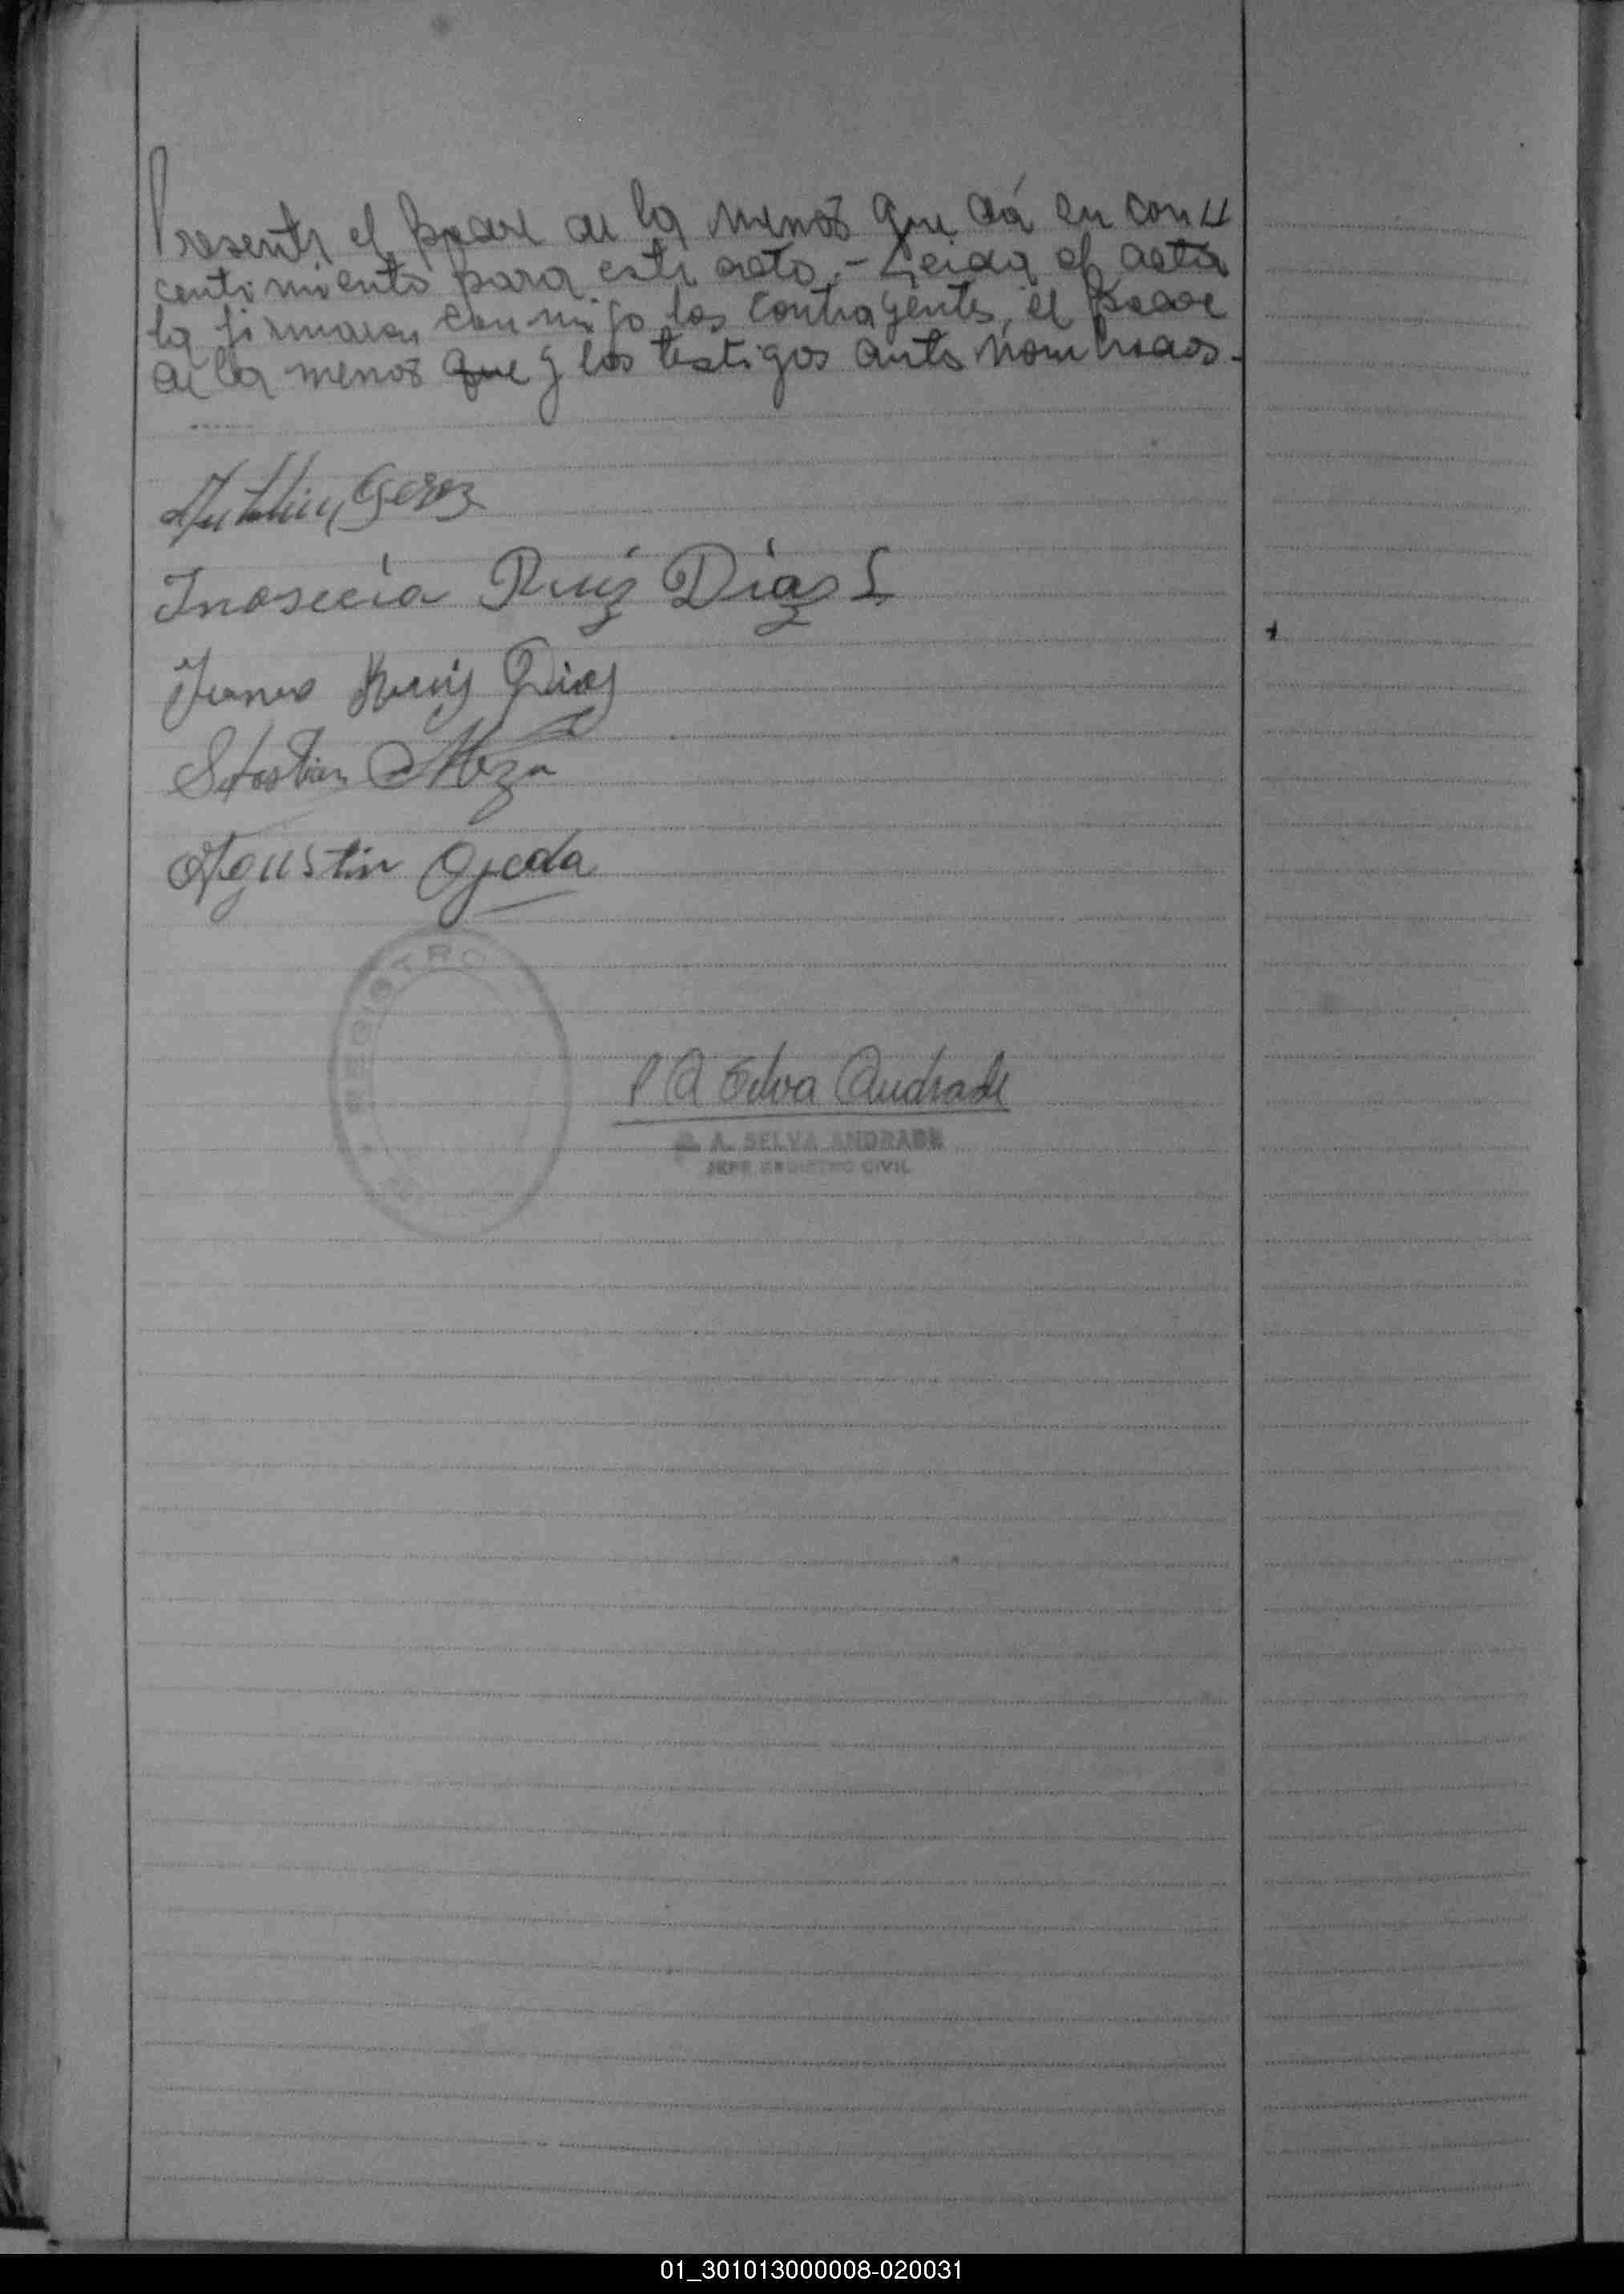 Presente el padre de la menor que dá su con
centimiento para este acto.- Leida el acta
la firmaron conmigo los contrayentes, el padre
de la menor que y los testigos ante nombrados.-
Gerez
Ruiz Diaz
Ruiz Diaz
Meza
Agustin Ojeda
REGISTRO
P A Selva Andrade
P. A. SELVA ANDRADE
JEFE REGISTRO CIVIL
01_301013000008-020031